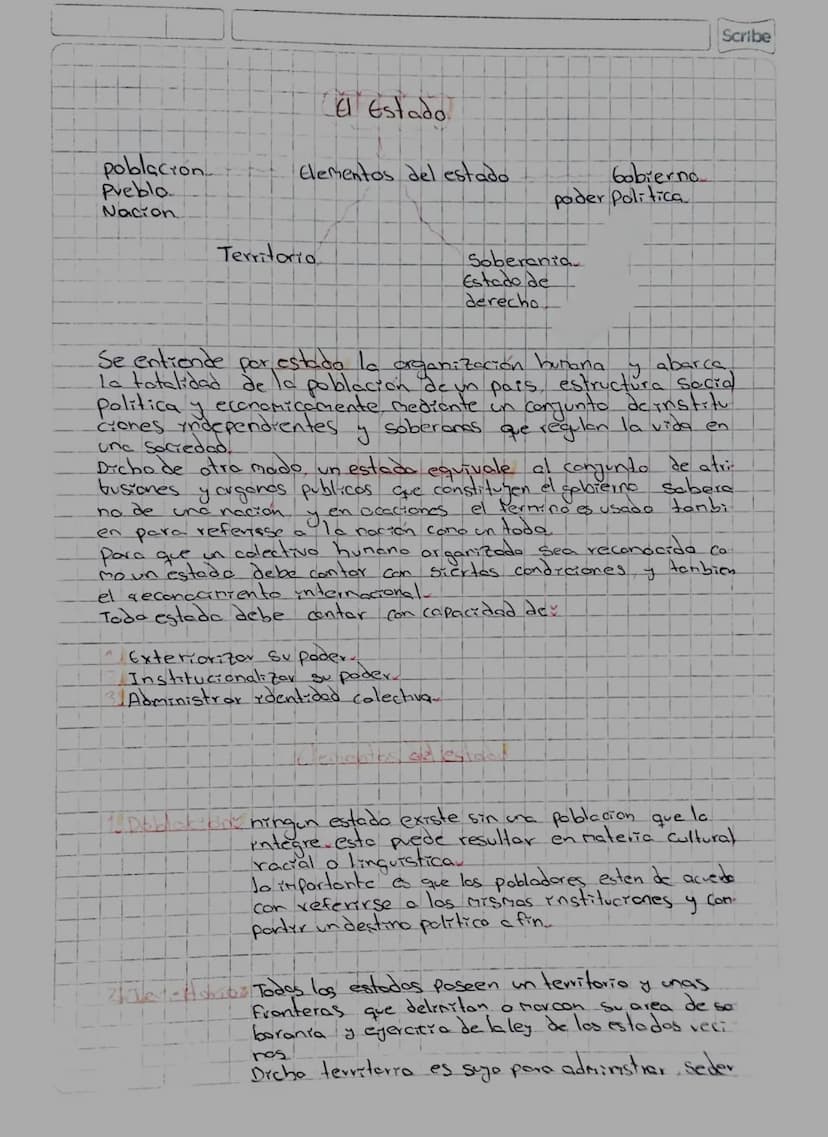 Scribe
El Estado
población
Pueblo
Nacion
Elementos del estado
Gobierno
poder Politica
Territorio
Soberania
Estado de
derecho
Se entiende por estado la organización humana y abarca
la totalidad de la poblacion de un pais, estructura social
politica y economicamente, mediente un conjunto de institu
ciones independientes y soberanas que regulan la vida en
una sociedad.
Dicho de otro modo, un estado equivale al conjunto de atri-
busiones y organos publicos que constituyen el gobierno sobera
no de una nación y en ocaciones el termino es usado tanbi
en para referisse a la nación como un todo
para que un colectivo humano organizado sea reconocido co
mo un estado debe contar con siertas condiciones, y tanbien
el reconocimiento internacional.
Todo estado debe contar con capacidad de:
1) Exteriorizar su poder.
2) Institucionalizar su poder.
3) Administrar identidad colectiva.
Elementos del estado
1) Poblacion: ningun estado existe sin una poblacion que la
integre. esto puede resultar en materia cultural
racial o linguistica.
lo importante es que los pobladores esten de acuerdo
con referirse a las mismas instituciones y con-
partir un destino politico afin.
2) Territorio: Todos los estados poseen un territorio y unas
fronteras que delimitan o marcan su area de so
borania y ejercicio de la ley de los estados veci
nos
Dicho territorro es suyo para administrar, seder